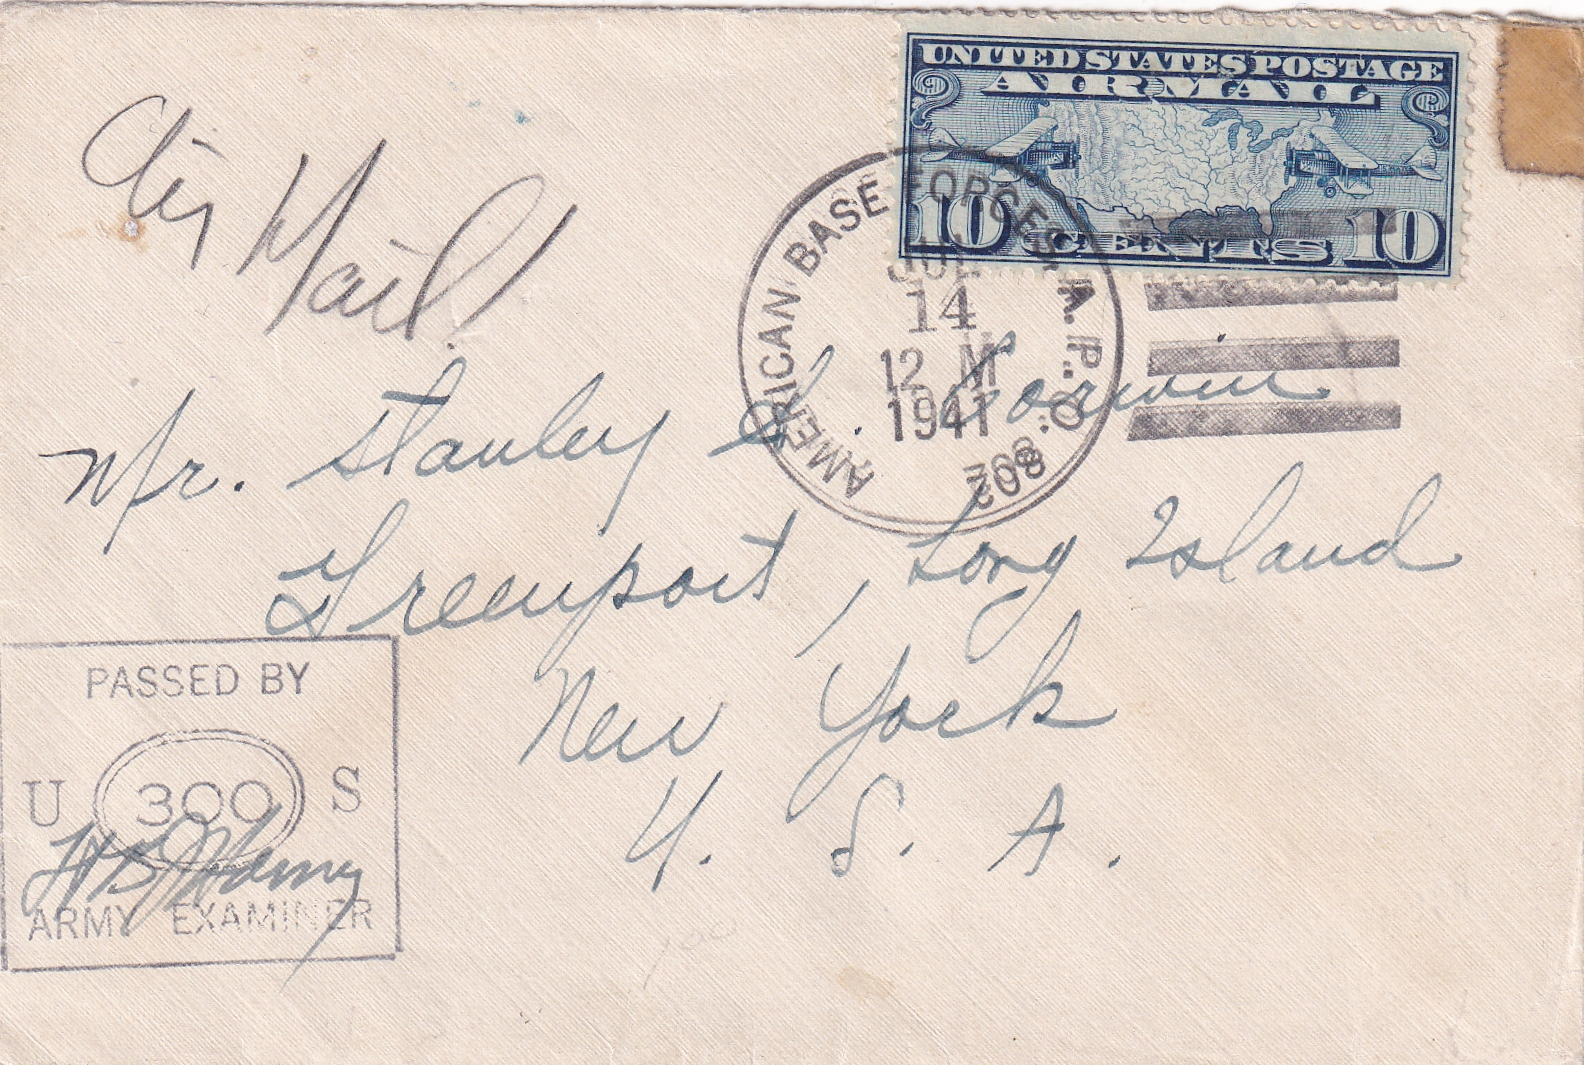 UNITED STATES POSTAGE
AIR MAIL
10 CENTS 10
Air Mail
AMERICAN BASE FORCES. A. P. O. 802
JUL
14
12 M
1941
Mr. Stanley S. Corwin
Greenport, Long Island
New York
U. S. A.
PASSED BY
U 300 S
ARMY EXAMINER